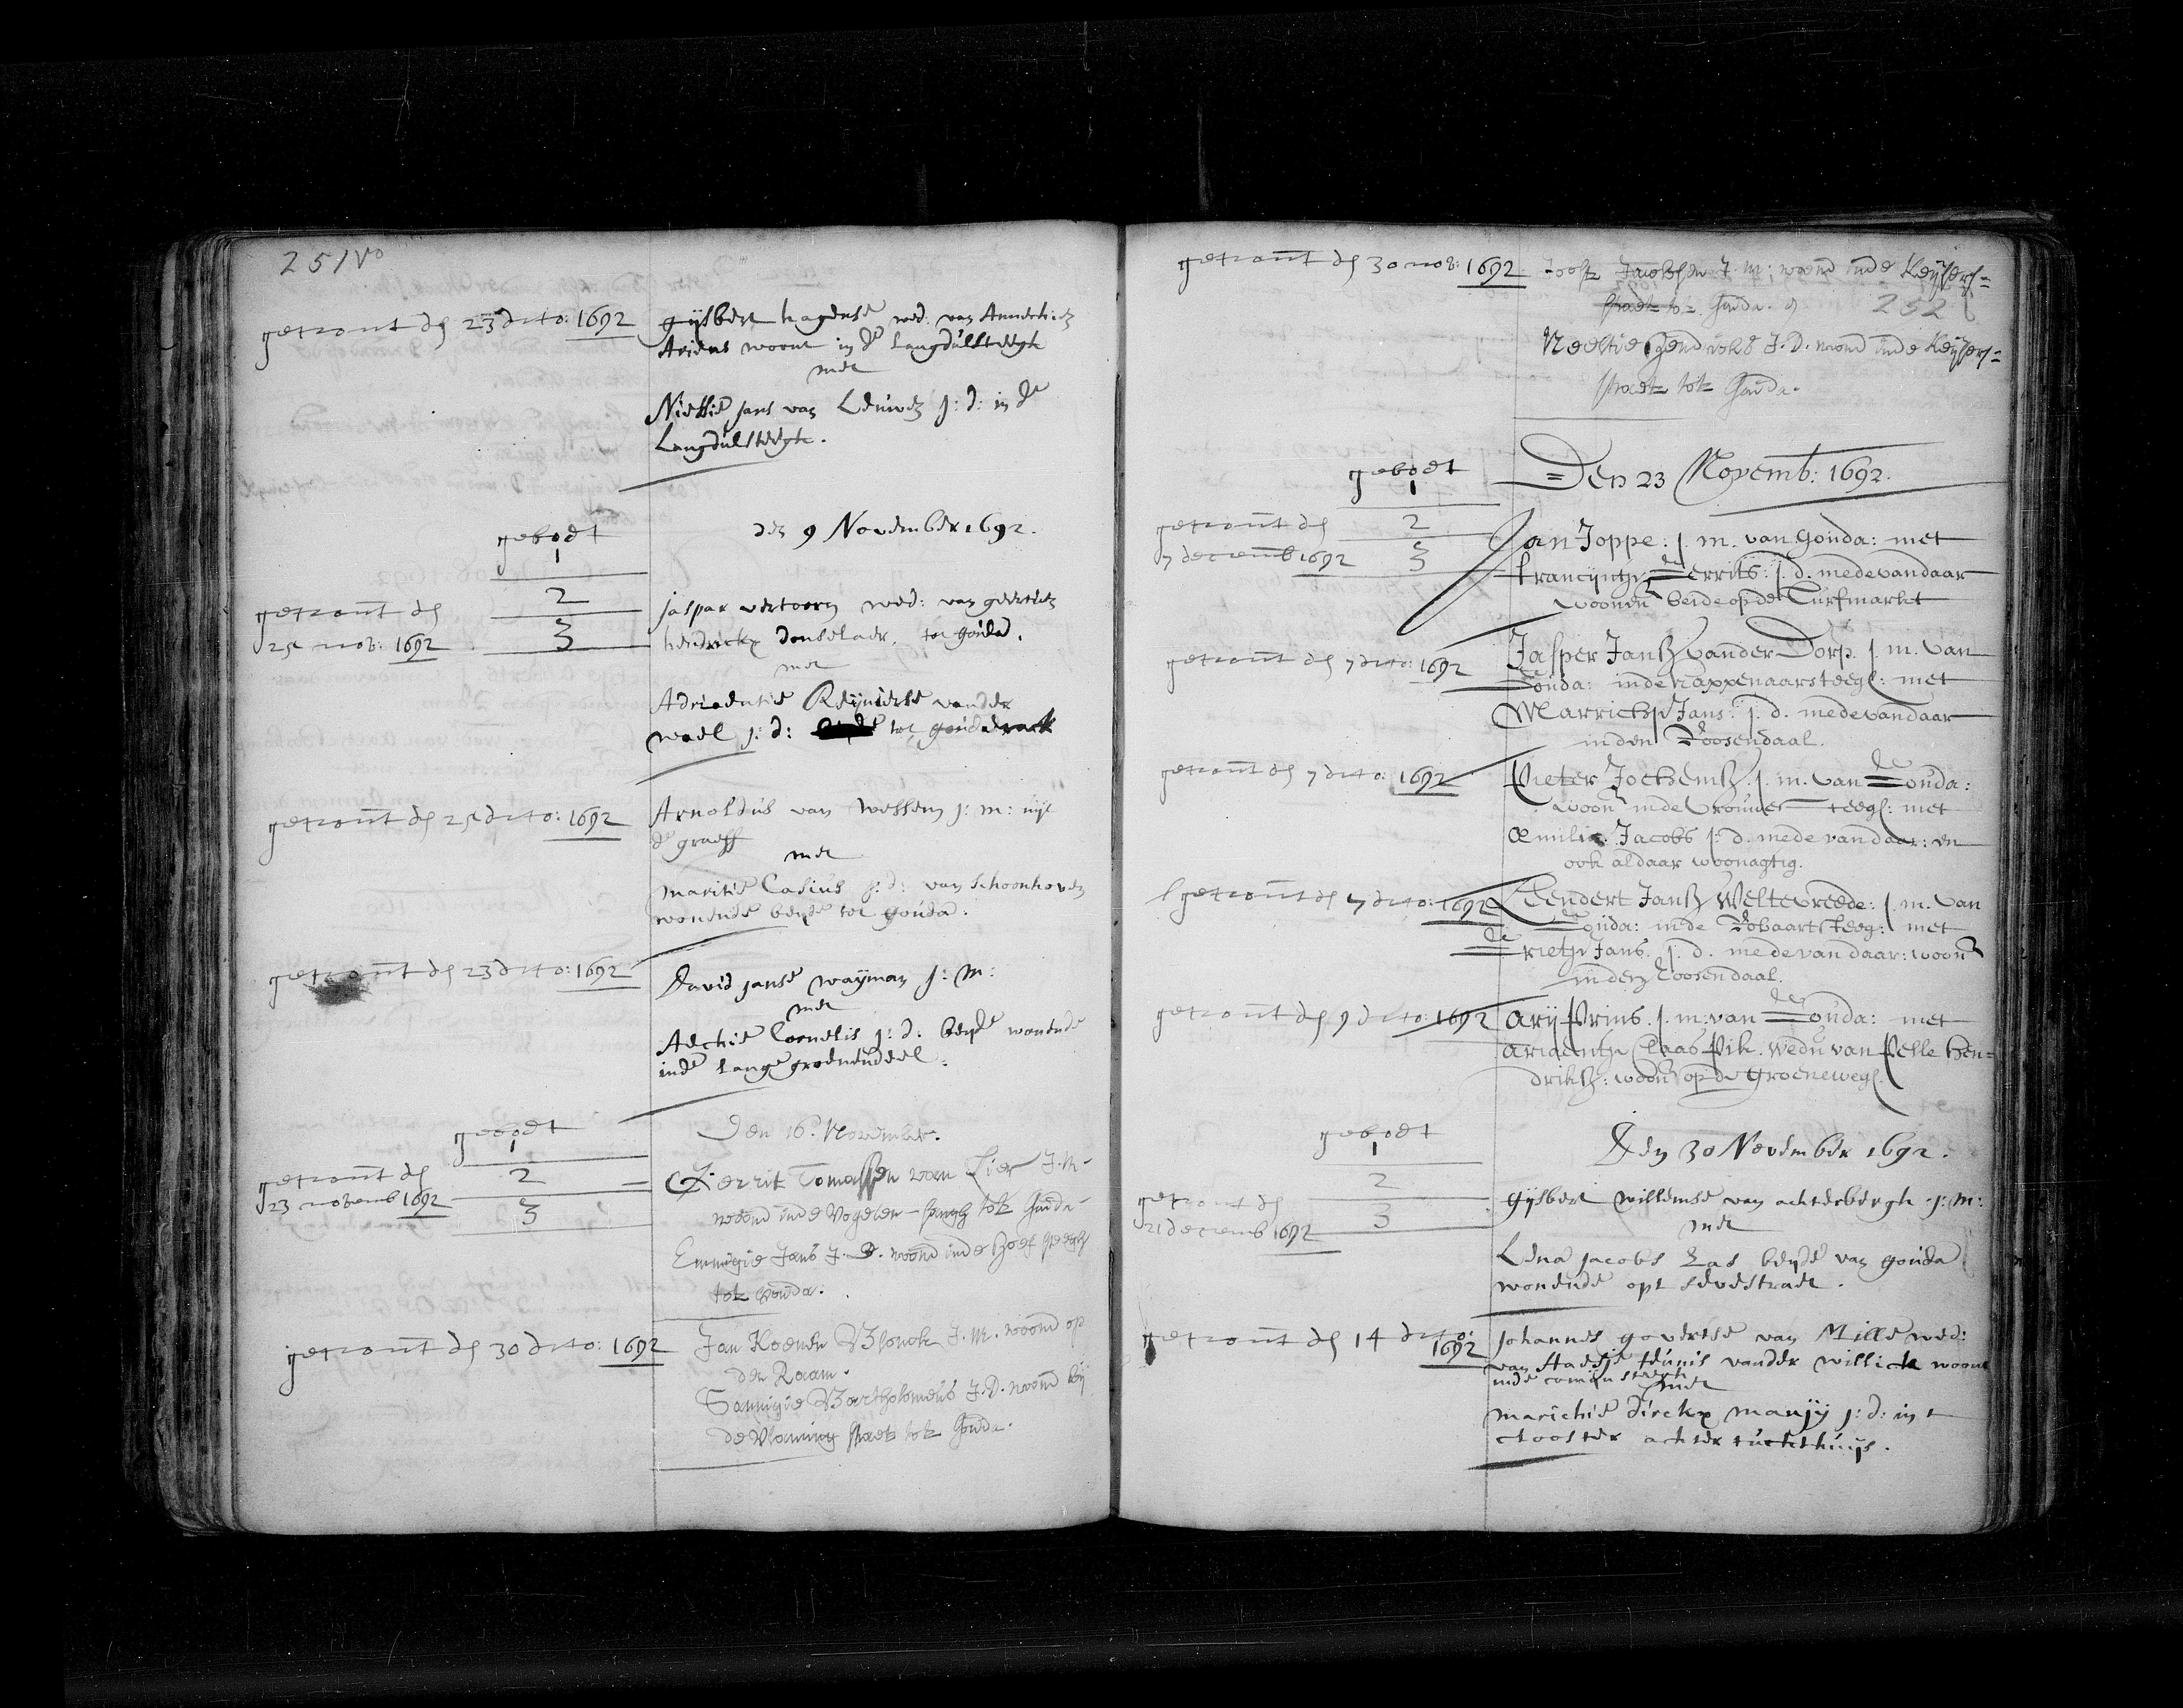 251vo
getrout den 23 dito: 1692
gijsbert hagense wed. van Annechien
Ariens woont in de Langdulsteegh
met
Nieltie Jans van Leuwen j: d: in de
Langdulsteegh.
gebodt
1
2
3
den 9 November 1692.
getrout den
25 nob: 1692
jaspar vertoorn wed: van geertien
hendrickx donselaer. tot gouda.
met
Adriaentie Reijnierse vander
wael j: d: tot gouderack
getrout den 25 dito: 1692
Arnoldus van wessem j: m: uijt
de graeff
met
maritie Casius j: d: van schoonhoven
wonende beyde tot gouda.
getrout den 23 dito: 1692
David janse wayman j: m:
met
Aechie Cornelis j: d: beyde wonende
inde Lange groenendael.
gebodt
1
2
3
Den 16. November.
getrout den
23 novemb 1692
Gerrit Tomassen van Lier J. M.
woond inde Vogelen-sangh tot Gouda
Emmigie Jans J. D. woond inde Hoef steegh
tot Gouda.
getrout den 30 dito: 1692
Jan Koenen Blonck J. M. woond op
den Raam.
Sannigie Bartholomeus J. D. woond bij
de Vlaming straet tot Gouda.
getrout den 30 nob: 1692
Joost Jacobsen J. M: woond inde Keijsers=
straet tot Gouda. en
252
Neeltie Hendricks J. D. woond inde Keijsers=
straet tot Gouda.
gebodt
1
2
3
Den 23 Novemb: 1692.
getrout den
7 decemb 1692
Jan Joppe: j. m. van Gouda: met
Francijntje Gerrits: j. d. mede vandaar
woonen beide op de Turfmarkt
getrout den 7 dito: 1692
Jasper Jansz vander Dorp. j. m. van
Gouda: inde rappenaarsteeg: met
Marrichje Jans: j. d. mede vandaar
inden Roosendaal.
getrout den 7 dito: 1692
Pieter Jochemsz. j. m. van Gouda:
woont inde vrouwe-steeg: met
Æmilia Jacobs j: d. mede vandaar: en
ook aldaar woonagtig.
getrout den 7 dito: 1692
Leendert Jansz Weltevreede: j. m. van
Gouda: inde Robaartsteeg: met
Grietje Jans. j. d. mede vandaar: woont
inden Roosendaal.
getrout den 9 dito: 1692
Arij Prins. j. m: van Gouda: met
Ariaentje Claas Pik. Wedu van Pelle Hen=
driksz: woont op de Groeneweg.
gebodt
1
2
3
Den 30 November 1692.
getrout den
21 decemb 1692
gijsbert willemse van achterbergh j: m:
met
Lena jacobs Las beyde van gouda
wonende opt Nevestraet.
getrout den 14 dito:
1692
Johannes govertse van Mille wed:
van Aaeltje teunis vander willick woont
inde comijnsteegh
met
marichie dirckx manjy j: d: in t
clooster achter tuchthuijs.